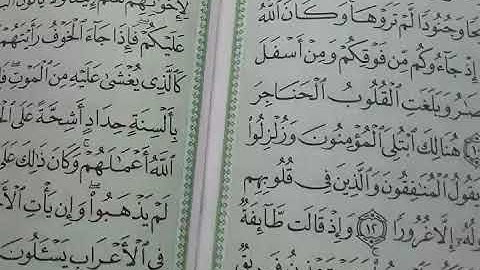 حًا وَجُنُودًا لَّمْ تَرَوْهَا وَكَانَ ٱللَّهُ
إِذْ جَآءُوكُم مِّن فَوْقِكُمْ وَمِنْ أَسْفَلَ
صَٰرُ وَبَلَغَتِ ٱلْقُلُوبُ ٱلْحَنَاجِرَ
هُنَالِكَ ٱبْتُلِىَ ٱلْمُؤْمِنُونَ وَزُلْزِلُوا۟
يَقُولُ ٱلْمُنَٰفِقُونَ وَٱلَّذِينَ فِى قُلُوبِهِم
ولُهُۥٓ إِلَّا غُرُورًا ١٢ وَإِذْ قَالَت طَّآئِفَةٌ
فَرِيقٌ
لِإِخْوَٰنِهِمْ هَلُمَّ
عَلَيْكُمْ ۖ فَإِذَا جَآءَ ٱلْخَوْفُ رَأَيْتَهُمْ
كَٱلَّذِى يُغْشَىٰ عَلَيْهِ مِنَ ٱلْمَوْتِ ۖ فَ
بِأَلْسِنَةٍ حِدَادٍ أَشِحَّةً عَلَى
ٱللَّهُ أَعْمَٰلَهُمْ ۚ وَكَانَ ذَٰلِكَ عَلَى
لَمْ يَذْهَبُوا۟ ۖ وَإِن يَأْتِ ٱلْأَ
فِى ٱلْأَعْرَابِ يَسْـَٔلُونَ